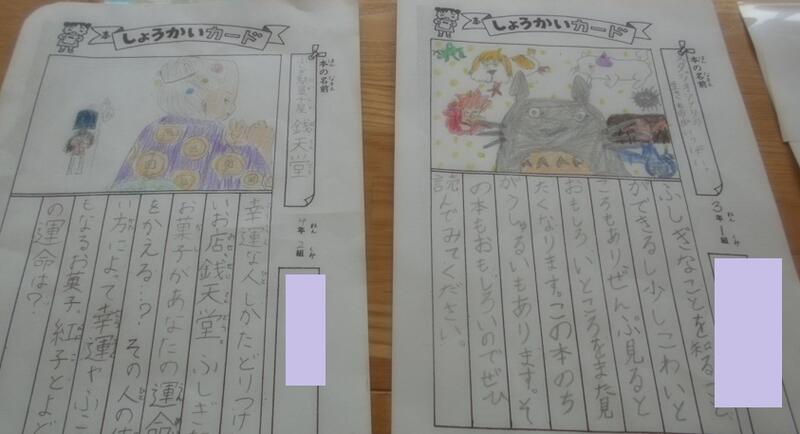 本 しょうかいカード
本の名前
ほん なまえ
ふしぎ駄菓子屋
銭天堂
4年2組
ねん くみ
幸運な人しかたどりつけ
いお店、銭天堂。ふしぎ
お菓子があなたの運命
をかえる…？その人の
い方によって幸運やふこ
もなるお菓子。紅子とよど
の運命は？
本 しょうかいカード
本の名前
ほん なまえ
スタジオジブリの
生きものがいっぱい
3年1組
ねん くみ
ふしぎなことを知ること
ができるし少しこわいと
ころもありぜんぶ見ると
おもしろいところをまた見
たくなります。この本のち
がうしゅるいもあります。そ
の本もおもしろいのでぜひ
読んでみてください。